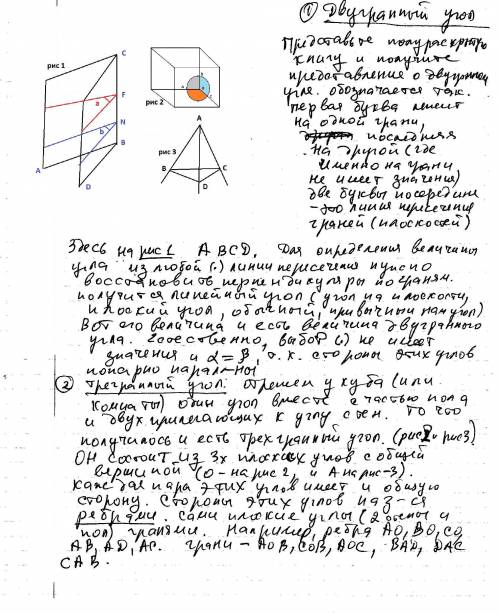 ① Двугранный угол
Представьте полураскрытую
книгу и получите
представление о двугранном
угле. обозначается так.
первая буква лежит
на одной грани,
последняя
на другой (где
именно на грани
не имеет значения)
две буквы посередине
- это линия пересечения
граней (плоскостей)
рис 1
C
F
a
N
b
B
A
D
рис 2
рис 3
A
B
C
D
Здесь на рис 1 ABCD. Для определения величины
угла из любой (.) линии пересечения нужно
восстановить перпендикуляры по граням.
получится линейный угол (угол на плоскости,
плоский угол, обычный, привычный нам угол)
Вот его величина и есть величина двугранного
угла. выбор (.) не имеет
значения и α = β, т.к. стороны этих углов
попарно
② трегранный угол. отрежем у куба (или
комнаты) один угол вместе с частью пола
и двух прилегающих к углу стен. То что
получилось и есть трехгранный угол. (рис 2 и рис 3)
Он состоит из 3х плоских углов с общей
вершиной (О - на рис 2, и А на рис - 3).
каждая пара этих углов имеет и общую
сторону. Стороны этих углов наз-ся
ребрами. Сами плоские углы (2 стены и
пол) гранями. Например, ребра AO, BO, CO,
AB, AD, AC. грани - AOB, COB, AOC, BAD, DAC
CAB.